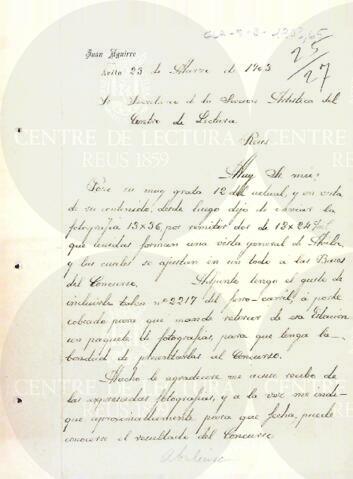 Juan Aguirre
Avila 23 de Marzo de 1903
25/27
Sr Secretario de la Seccion Artistica del
Centro de Lectura
Reus
Muy Sr mio:
Por su muy grata 12 del actual, y en vista
de su contenido, desde luego dejo de enviar la
fotografía 13x36, por remitir dos de 18x24
que unidas forman una vista general de Avila,
y las cuales se ajustan en un todo a las Bases
del Concurso. Adjunto tengo el gusto de
incluirle talon nº 2217 del ferro-carril, á porte
cobrado para que mande retirar de esa Estación
un paquete de fotografías para que tenga la
bondad de presentarlas al Concurso.
Mucho le agradecere me acuse recibo de
las expresadas fotografias, y a la vez me indi-
que aproximadamente para que fecha, puede
conocerse el resultado del Concurso
CENTRE DE LECTURA
REUS 1859